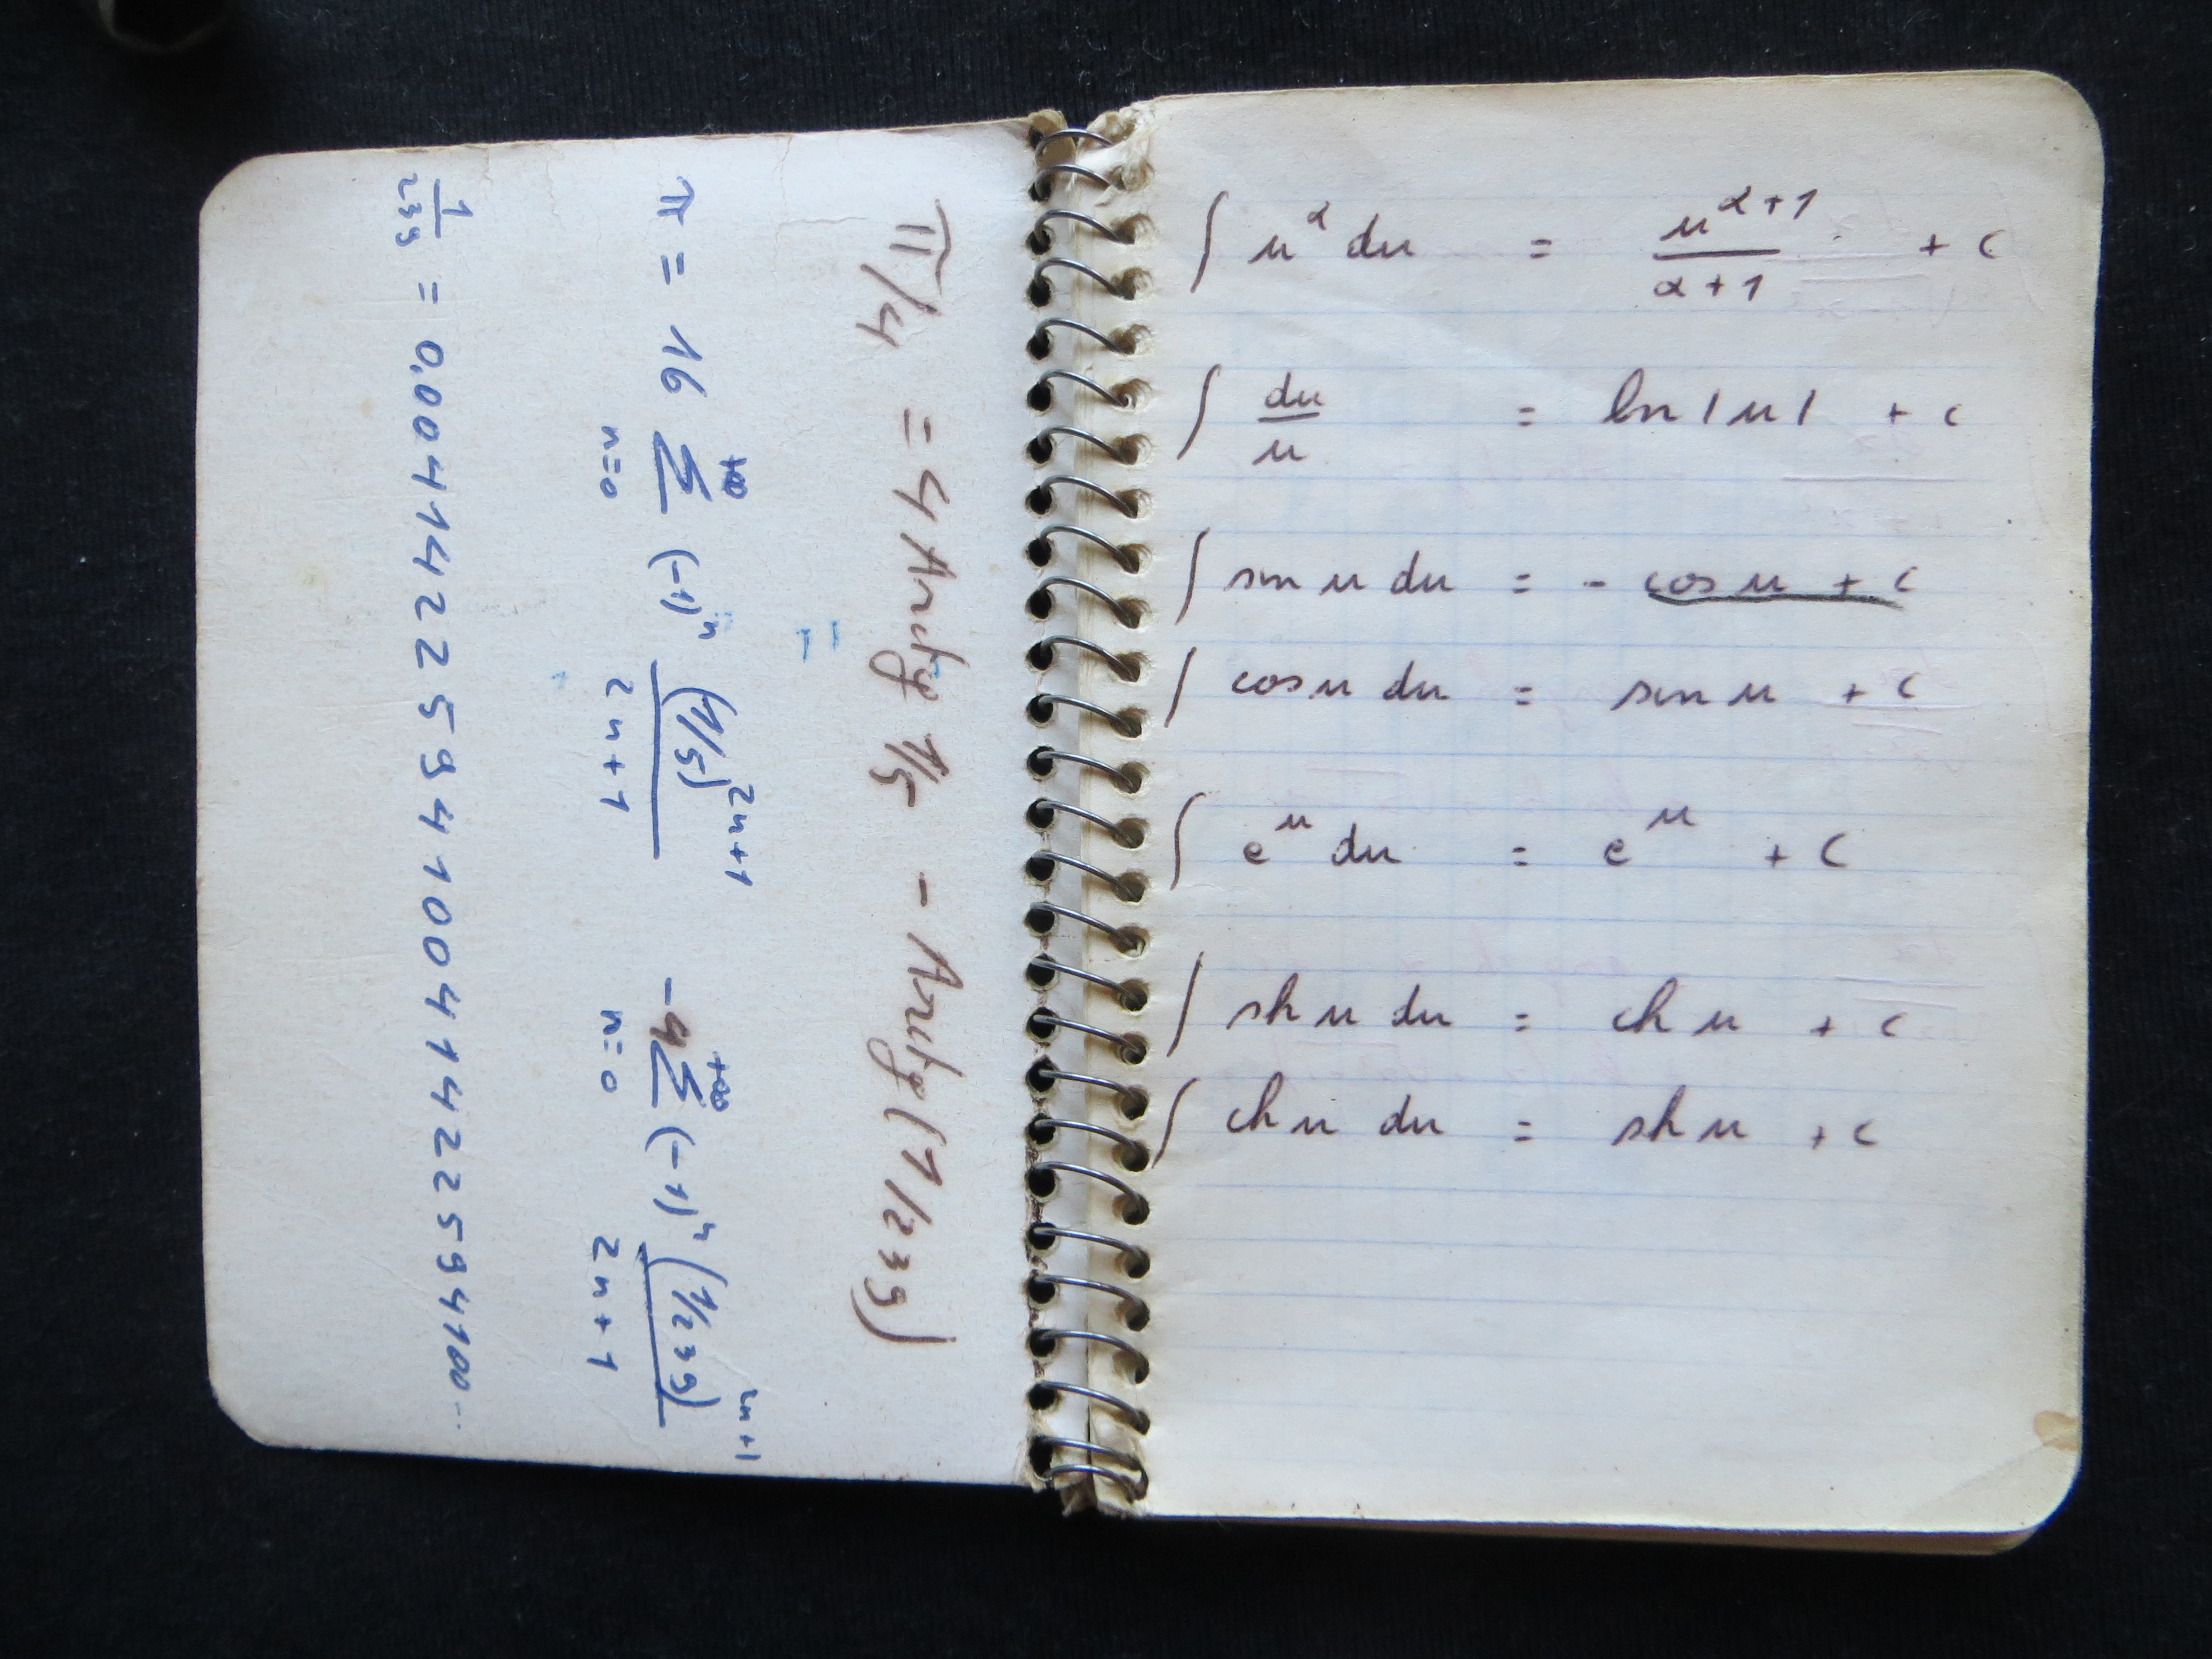 π/4 = 4 Arctg 1/5 - Arctg (1/239)
π = 16 ∑_{n=0}^{+∞} (-1)^n (1/5)^{2n+1} / 2n+1 - 4 ∑_{n=0}^{+∞} (-1)^n (1/239)^{2n+1} / 2n+1
1/239 = 0.004142259410041422594100...
∫ u^α du = u^{α+1} / α+1 + C
∫ du/u = ln |u| + C
∫ sin u du = - cos u + C
∫ cos u du = sin u + C
∫ e^u du = e^u + C
∫ sh u du = ch u + C
∫ ch u du = sh u + C